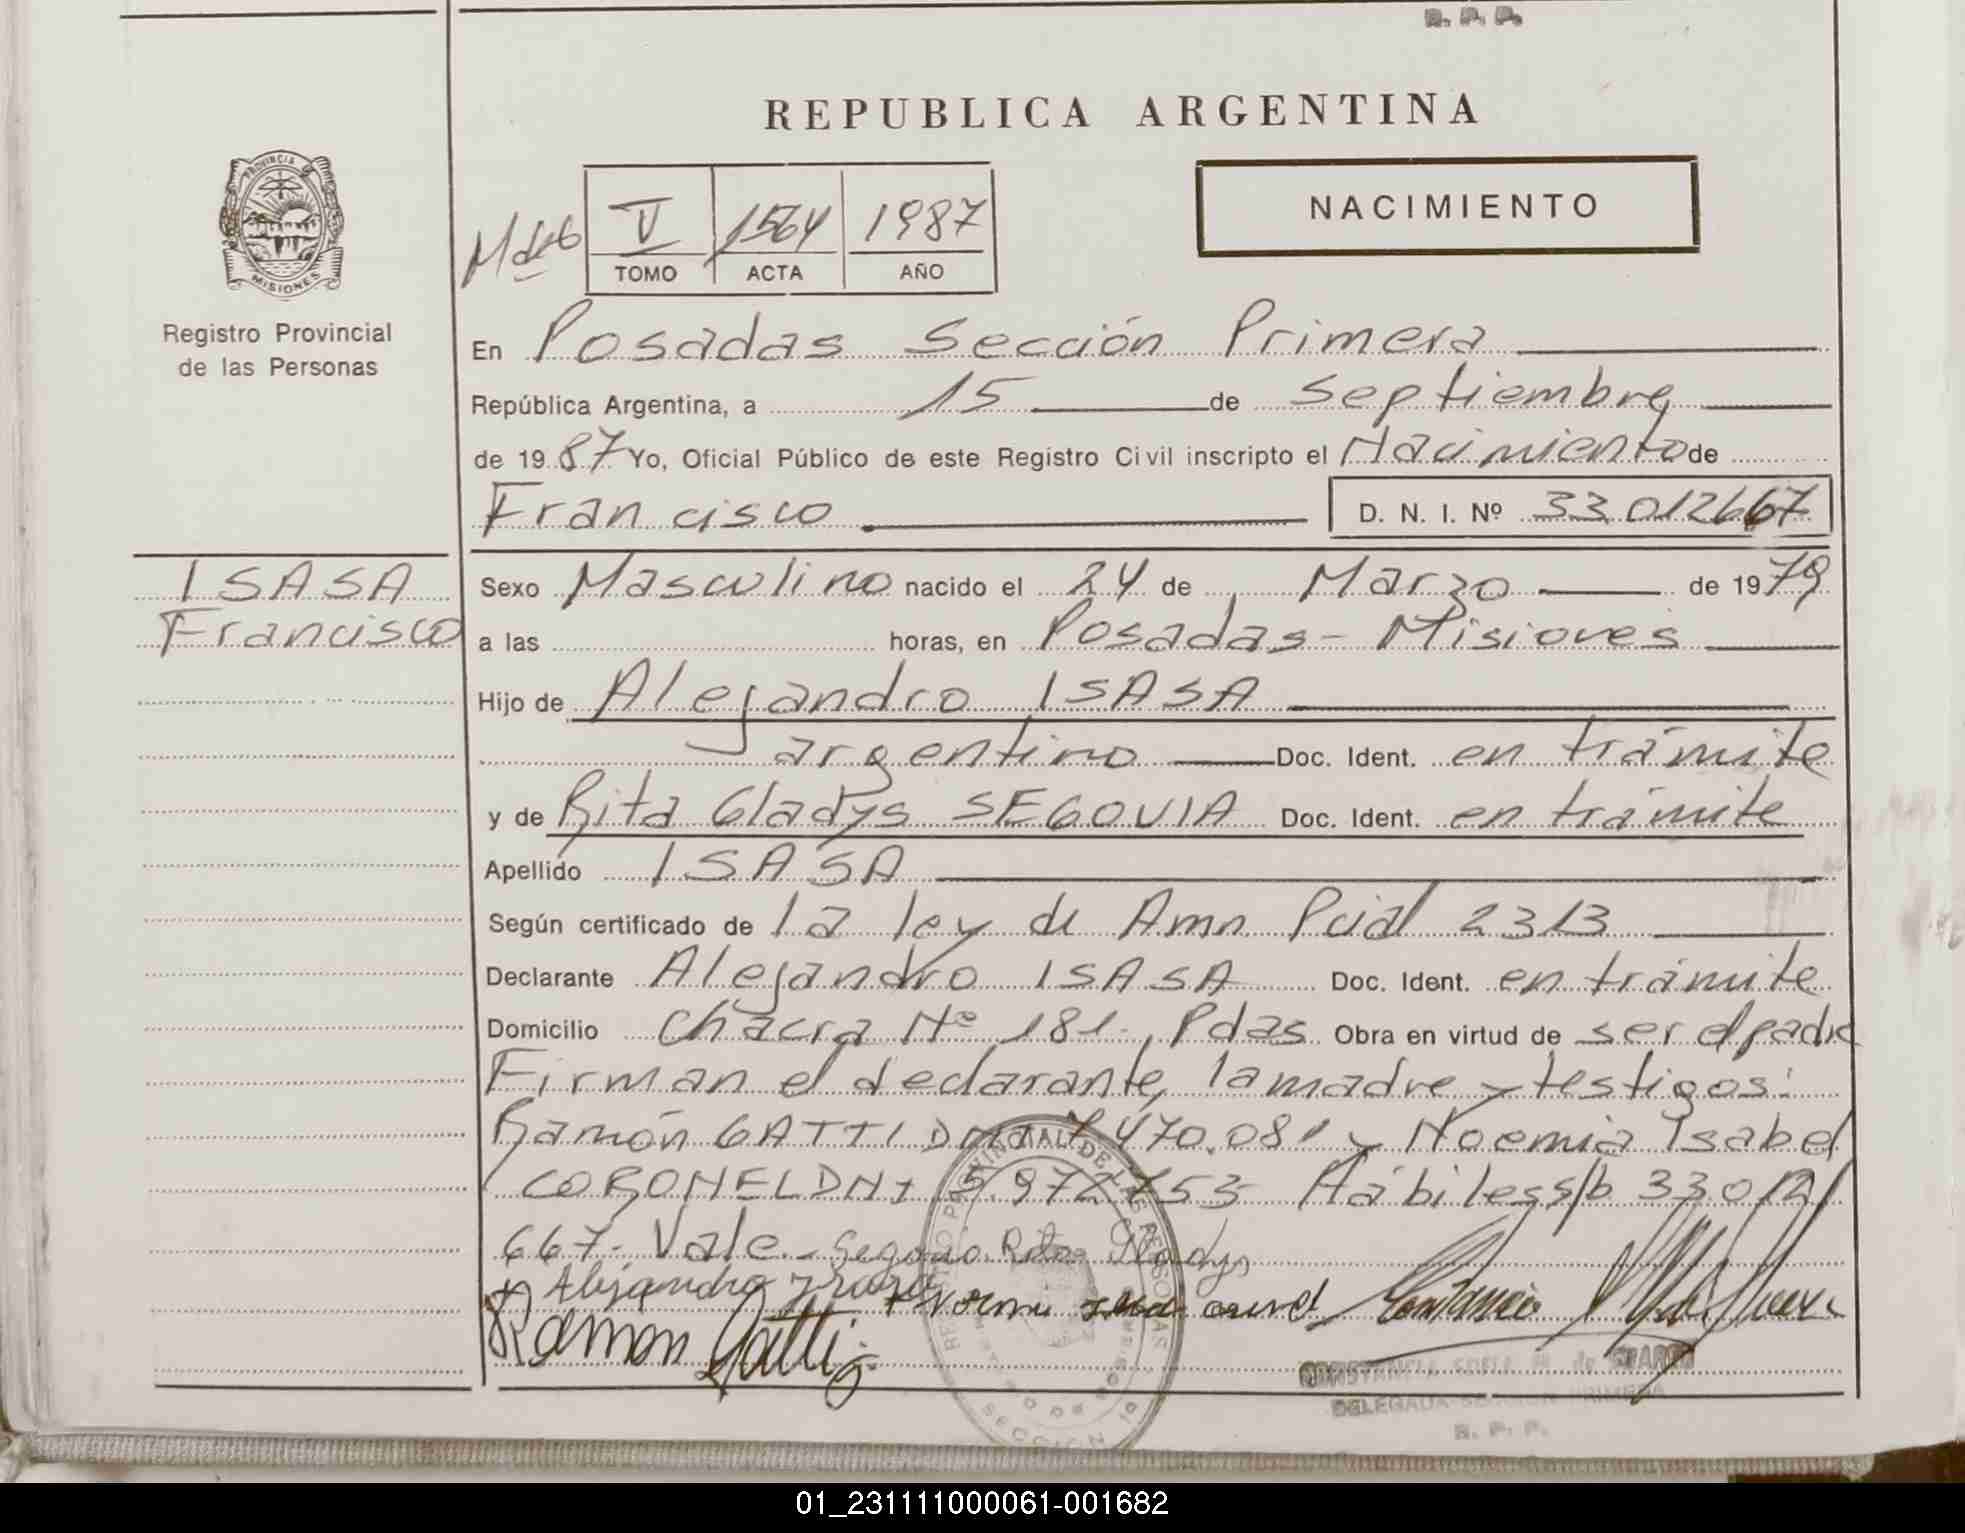 R. P. P.
REPUBLICA ARGENTINA
PROVINCIA
MISIONES
Registro Provincial
de las Personas
V 1564 1987
TOMO ACTA AÑO
NACIMIENTO
En Posadas Sección Primera
República Argentina, a 15 de Septiembre
de 1987 Yo, Oficial Público de este Registro Civil inscripto el Nacimiento de
Francisco D. N. I. Nº 33.012667
ISASA
Francisco
Sexo Masculino nacido el 24 de Marzo de 1979
a las horas, en Posadas - Misiones
Hijo de Alejandro ISASA
argentino Doc. Ident. en trámite
y de Rita Gladys SEGOVIA Doc. Ident. en trámite
Apellido ISASA
Según certificado de la ley de Amn Pcial 2313
Declarante Alejandro ISASA Doc. Ident. en trámite
Domicilio Chacra Nº 181., Pdas Obra en virtud de ser el padre
Firman el declarante, la madre y testigos:
Ramón GATTI DNI 470.081 y Noemia Isabel
CORONEL DNI 5.972.753 Hábiles s/b 33.012
667- Vale.- Segovia Rita Gladys
Alejandro
Ramon Gatti
DELEGADA SECCION PRIMERA
R. P. P.
01_231111000061-001682